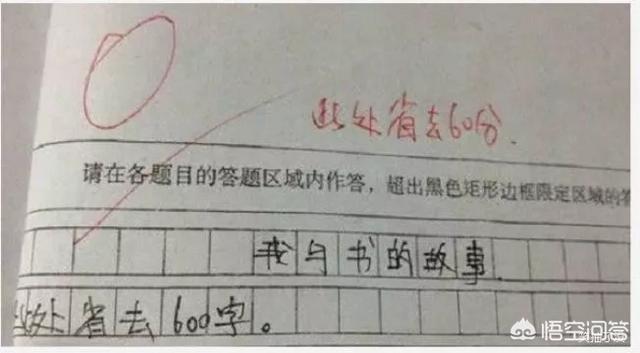 此处省去60分.
请在各题目的答题区域内作答，超出黑色矩形边框限定区域的答
我与书的故事
此处省去600字。
悟空问答